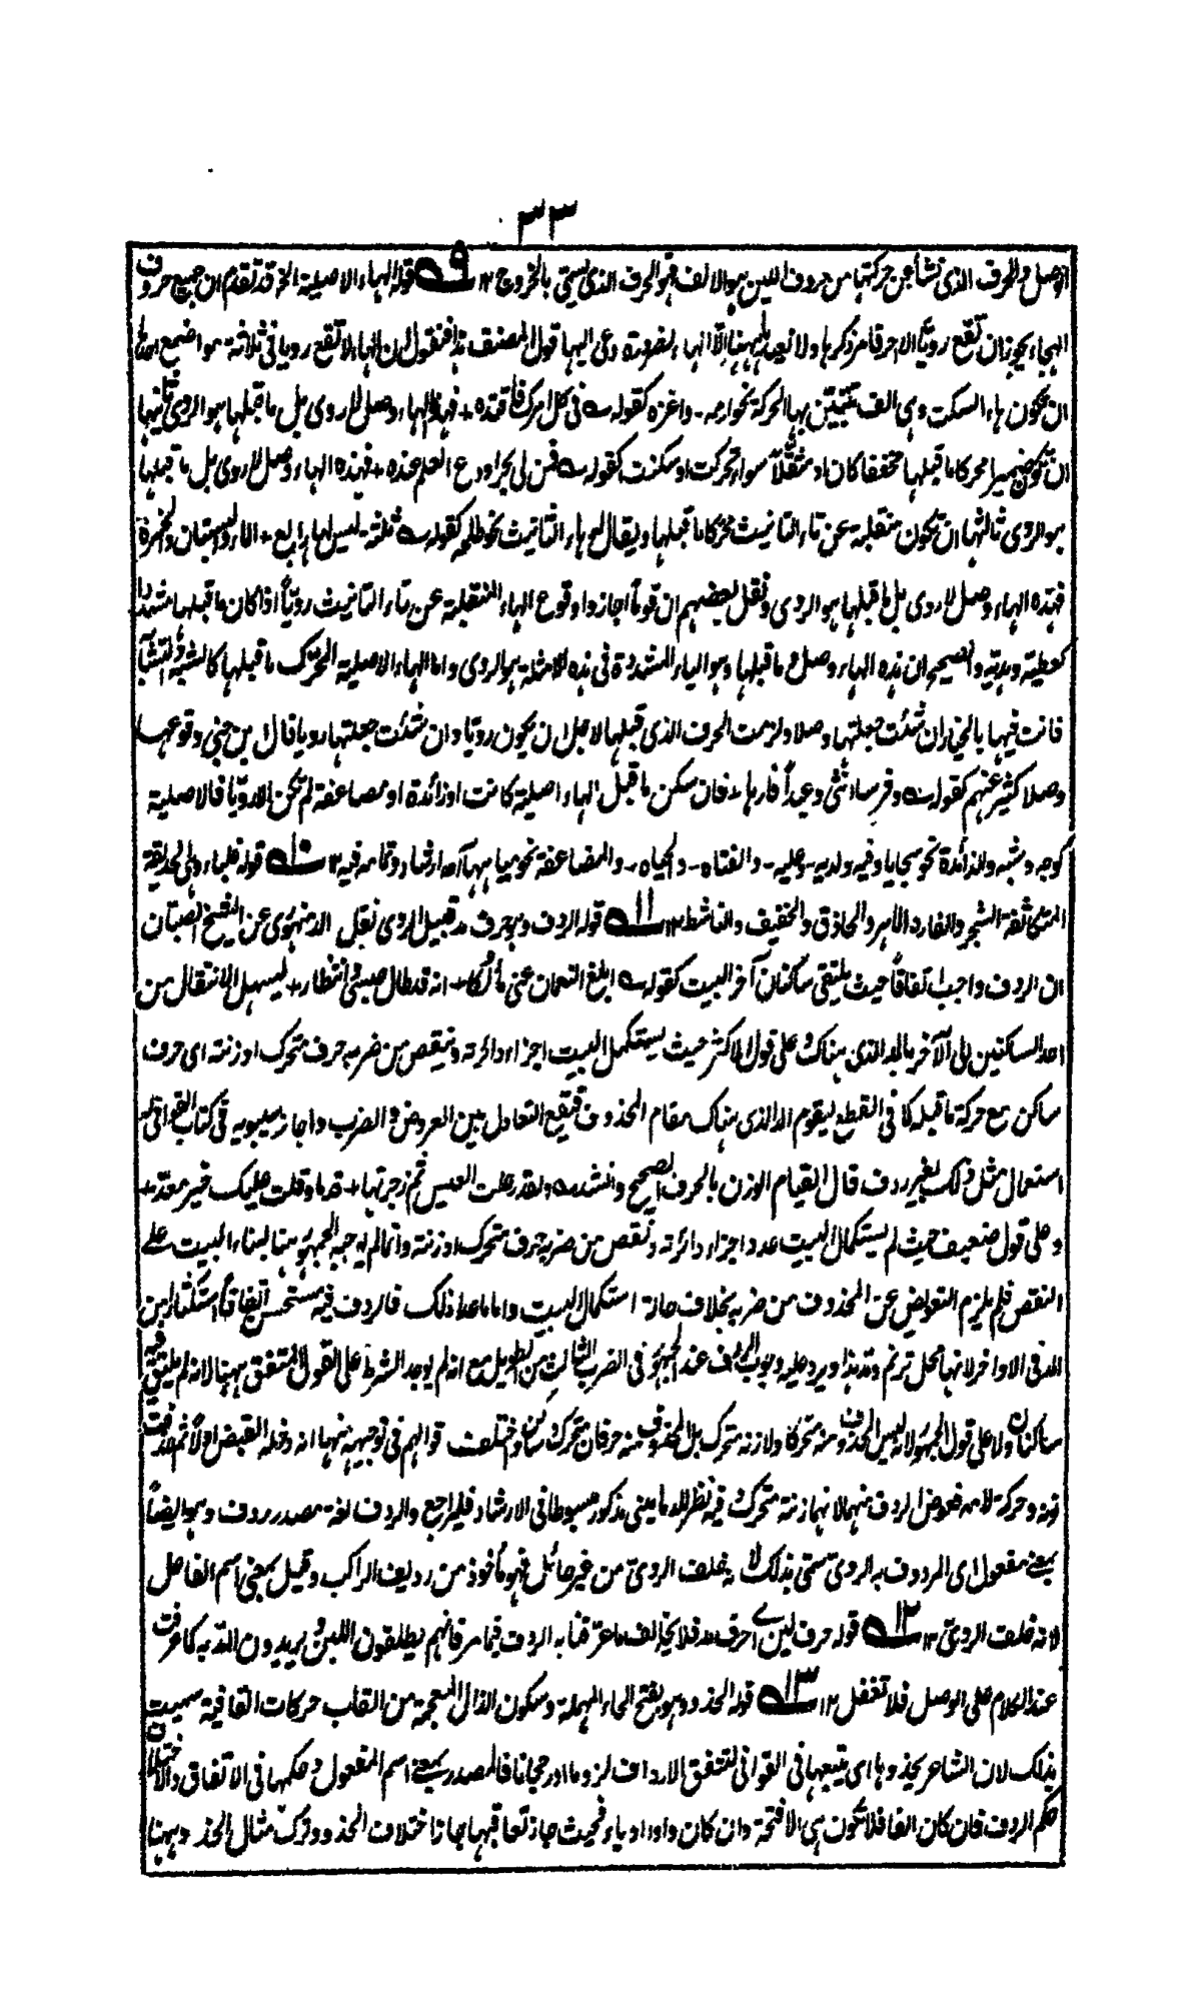 ٣٣
الوصل والحرف الذى تنشأ عن حركتها من حروف اللين هو الالف فهو الحرف الذى يسمى بالخروج ١٢ ٩ قوله الهاء الاصلية الخ قد تقدم ان جميع حروف
الهجاء يجوز ان تقع رويا الا احرفا مر ذكرها ولا نعيد ههنا الا الهاء لضرورة دعى اليها قول المصنف هذا فنقول ان الهاء لا تقع رويا فى ثلاثة مواضع احدها
ان يكون هاء السكت وهى التى تبين بها الحركة نحو ارمه واغزه كقوله فى كل امرك فاقتده + فهذه الهاء وصل لا روى بل ما قبلها هو الروى ثانيها
ان تكون ضميرا محركا ما قبلها مخففا كان او مثقلا سواء تحركت او سكنت كقوله فمن لى بحر اودع العلم عنده + فهذه الهاء وصل لا روى بل ما قبلها
هو الروى ثالثها ان تكون منقلبة عن تاء التانيث محركا ما قبلها ويقال لها هاء التانيث نحو طلحه كقوله ثلثة ليس لها رابع + الماء والبستان والخمرة
فهذه الهاء وصل لا روى بل ما قبلها هو الروى ونقل بعضهم ان قوما اجازوا وقوع الهاء المنقلبة عن تاء التانيث رويا اذا كان ما قبلها مشددا
كعطيه وهديه والصحيح ان هذه الهاء وصل وما قبلها وهو الياء المشددة فى هذه الامثلة هو الروى واما الهاء الاصلية المتحرك ما قبلها كالشبه
فانت فيها بالخيار ان شئت جعلتها وصلا ولزمت الحرف الذى قبلها لاجل ان يكون رويا وان شئت جعلتها رويا قال ابن جنى وقوعها
وصلا كثير عنهم كقوله فان سكن ما قبل الهاء اصلية كانت او زائدة او مضاعفة لم تكن الا رويا فالاصلية
كوجه وشبه والزائدة نحو سجاياه وفيه ولديه وعليه والفتاه والحياه والمضاعفة نحو مياهها اه ارشاد وتمامه فيه ١٢ ١٠ قوله غلباء وهى الحديقة
المتكاثفة الشجر والفارد الماهر والحاذق والخفيف والناشط ١٢ ١١ قوله الردف وهو حرف مد قبيل الروى نقل الدمنهورى عن الشيخ الصبان
ان الردف واجب اتفاقا حيث يلتقى ساكنان آخر البيت كقوله ابلغ النعمان عنى مألكا + انه قد طال حبسى وانتظار + ليسهل الانتقال من
احد الساكنين الى الآخر بالمد الذى هناك وعلى قول الاكثر حيث يستكمل البيت اجزاء دائرته وينقص من ضربه حرف متحرك او زنته اى حرف
ساكن مع حركة ما قبله كما فى القطع ليقوم المد الذى هناك مقام المحذوف فيقع التعادل بين العروض والضرب واجاز سيبويه فى كتاب القوافى له
استعمال مثل ذلك بغير ردف قال لقيام الوزن بالحرف الصحيح وانشد ولقد رحلت العيس ثم زجرتها + قدما وقلت عليك خير معد +
وعلى قول ضعيف حيث لم يستكمل البيت عدد اجزاء دائرته ونقص من ضربه حرف متحرك او زنته وانما لم يوجبه الجمهور هنا لبناء البيت على
النقص فلم يلزم التعويض عن المحذوف من ضربه بخلاف حالة استكمال البيت واما ما عدا ذلك فالردف فيه مستحسن اتفاقا استكثارا من
المد فى الاواخر لانها محل ترنم ومد هذا ويرد عليه وجوب الردف عند الجمهور فى الضرب الثالث من الطويل مع انه لم يوجد الشرط على القول المتفق ههنا لانه لم يلتق فيه
ساكنان ولا على قول الجمهور لانه ليس المحذوف منه متحركا ولا زنة متحرك بل المحذوف منه حرفان متحرك وساكن واختلفت اقوالهم فى توجيهه منها انه دخله القبض اولا ثم حذفت
نونه وحركة لامه فعوض الردف منهما لانهما زنة متحرك وفيه نظر للدمامينى مذكور مبسوطا فى الارشاد فليراجع والردف لغة مصدر ردف وهو ايضا
بمعنى مفعول اى المردوف به الروى سمى بذلك لانه خلف الروى من غير حائل فهو مأخوذ من رديف الراكب وقيل بمعنى اسم الفاعل
لانه خلف الروى ١٢ ١٢ قوله حرف لين اى احرف مد فلا يخالف ما عرفنا به الردف فيما مر فانهم يطلقون اللين ويريدون المد به كما عرفت
عند الكلام على الوصل فلا تغفل ١٢ ١٣ قوله الحذو وهو بفتح الحاء المهملة وسكون الذال المعجمة من القاب حركات القافية سميت
بذلك لان الشاعر يحذوها اى يتبعها فى القوافى لتتفق الارداف لزوما او رجحانا فالمصدر بمعنى اسم المفعول وحكمها فى الاتفاق والاختلاف
حكم الردف فان كان الفا فلا تكون هى الا فتحة وان كان واوا او ياء فحيث جاز تعاقبهما جاز اختلاف الحذو وترك مثال الحذو وههنا